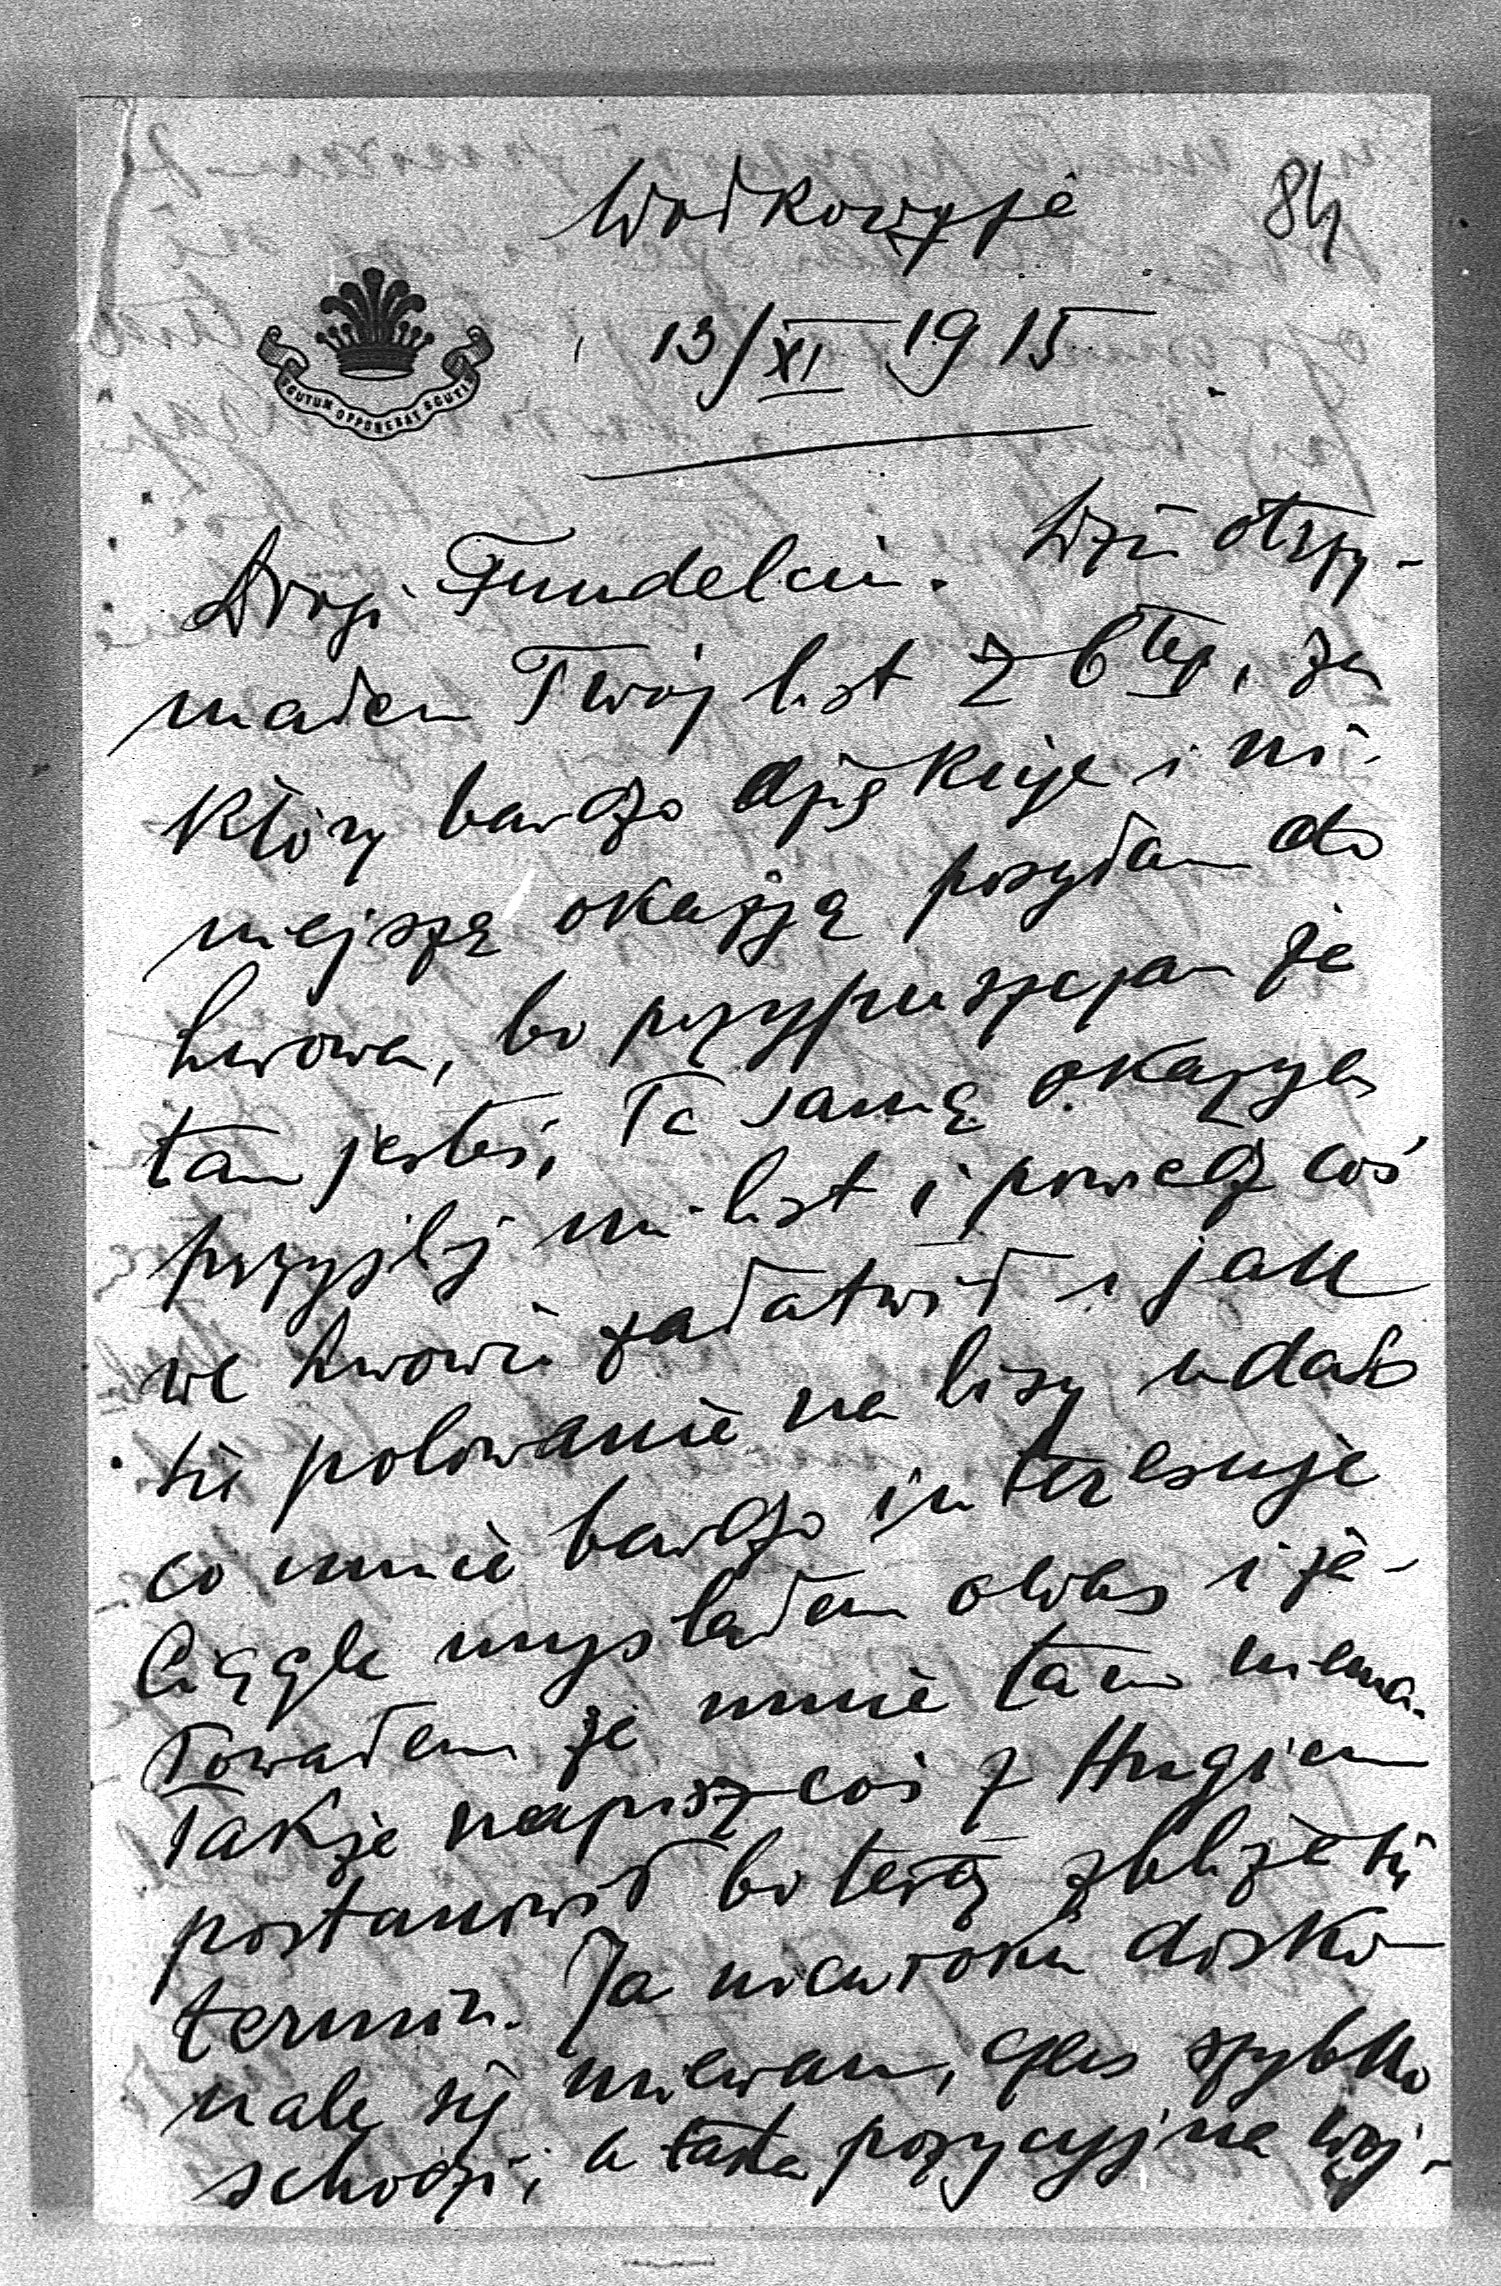 Wołkowyje
84
13/XI 1915
SCUTUM OPPONEBAT SCUTIS
Drogi Fundelciu. Dziś otrzy-
małem Twój list z 6tego, za
który bardzo dziękuję i ni-
niejszą okazją posyłam do
Lwowa, bo przypuszczam że
tam jesteś, Tą samą okazyą
przyślij mi list i powiedz coś
we Lwowie załatwił i jak
się polowanie na lisy udało
co mnie bardzo interesuje
Ciągle myślałem o Was i ża-
łowałem że mnie tam niema.
Także napisz coś z Hugiem
postanowił bo teraz zbliża się
termin. Ja nieźle dosko-
nale się miewam, czas szybko
schodzi, a taka pozycyjna woj-